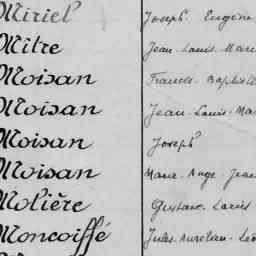 Miriel Joseph Eugène
Mitre Jean-Louis-Mari
Moisan Francis-Baptiste
Moisan Jean-Louis-Ma
Moisan Joseph
Moisan Marie-Ange-Jean
Molière Gustave-Louis
Moncoiffé Jules-Aurélien-Léo